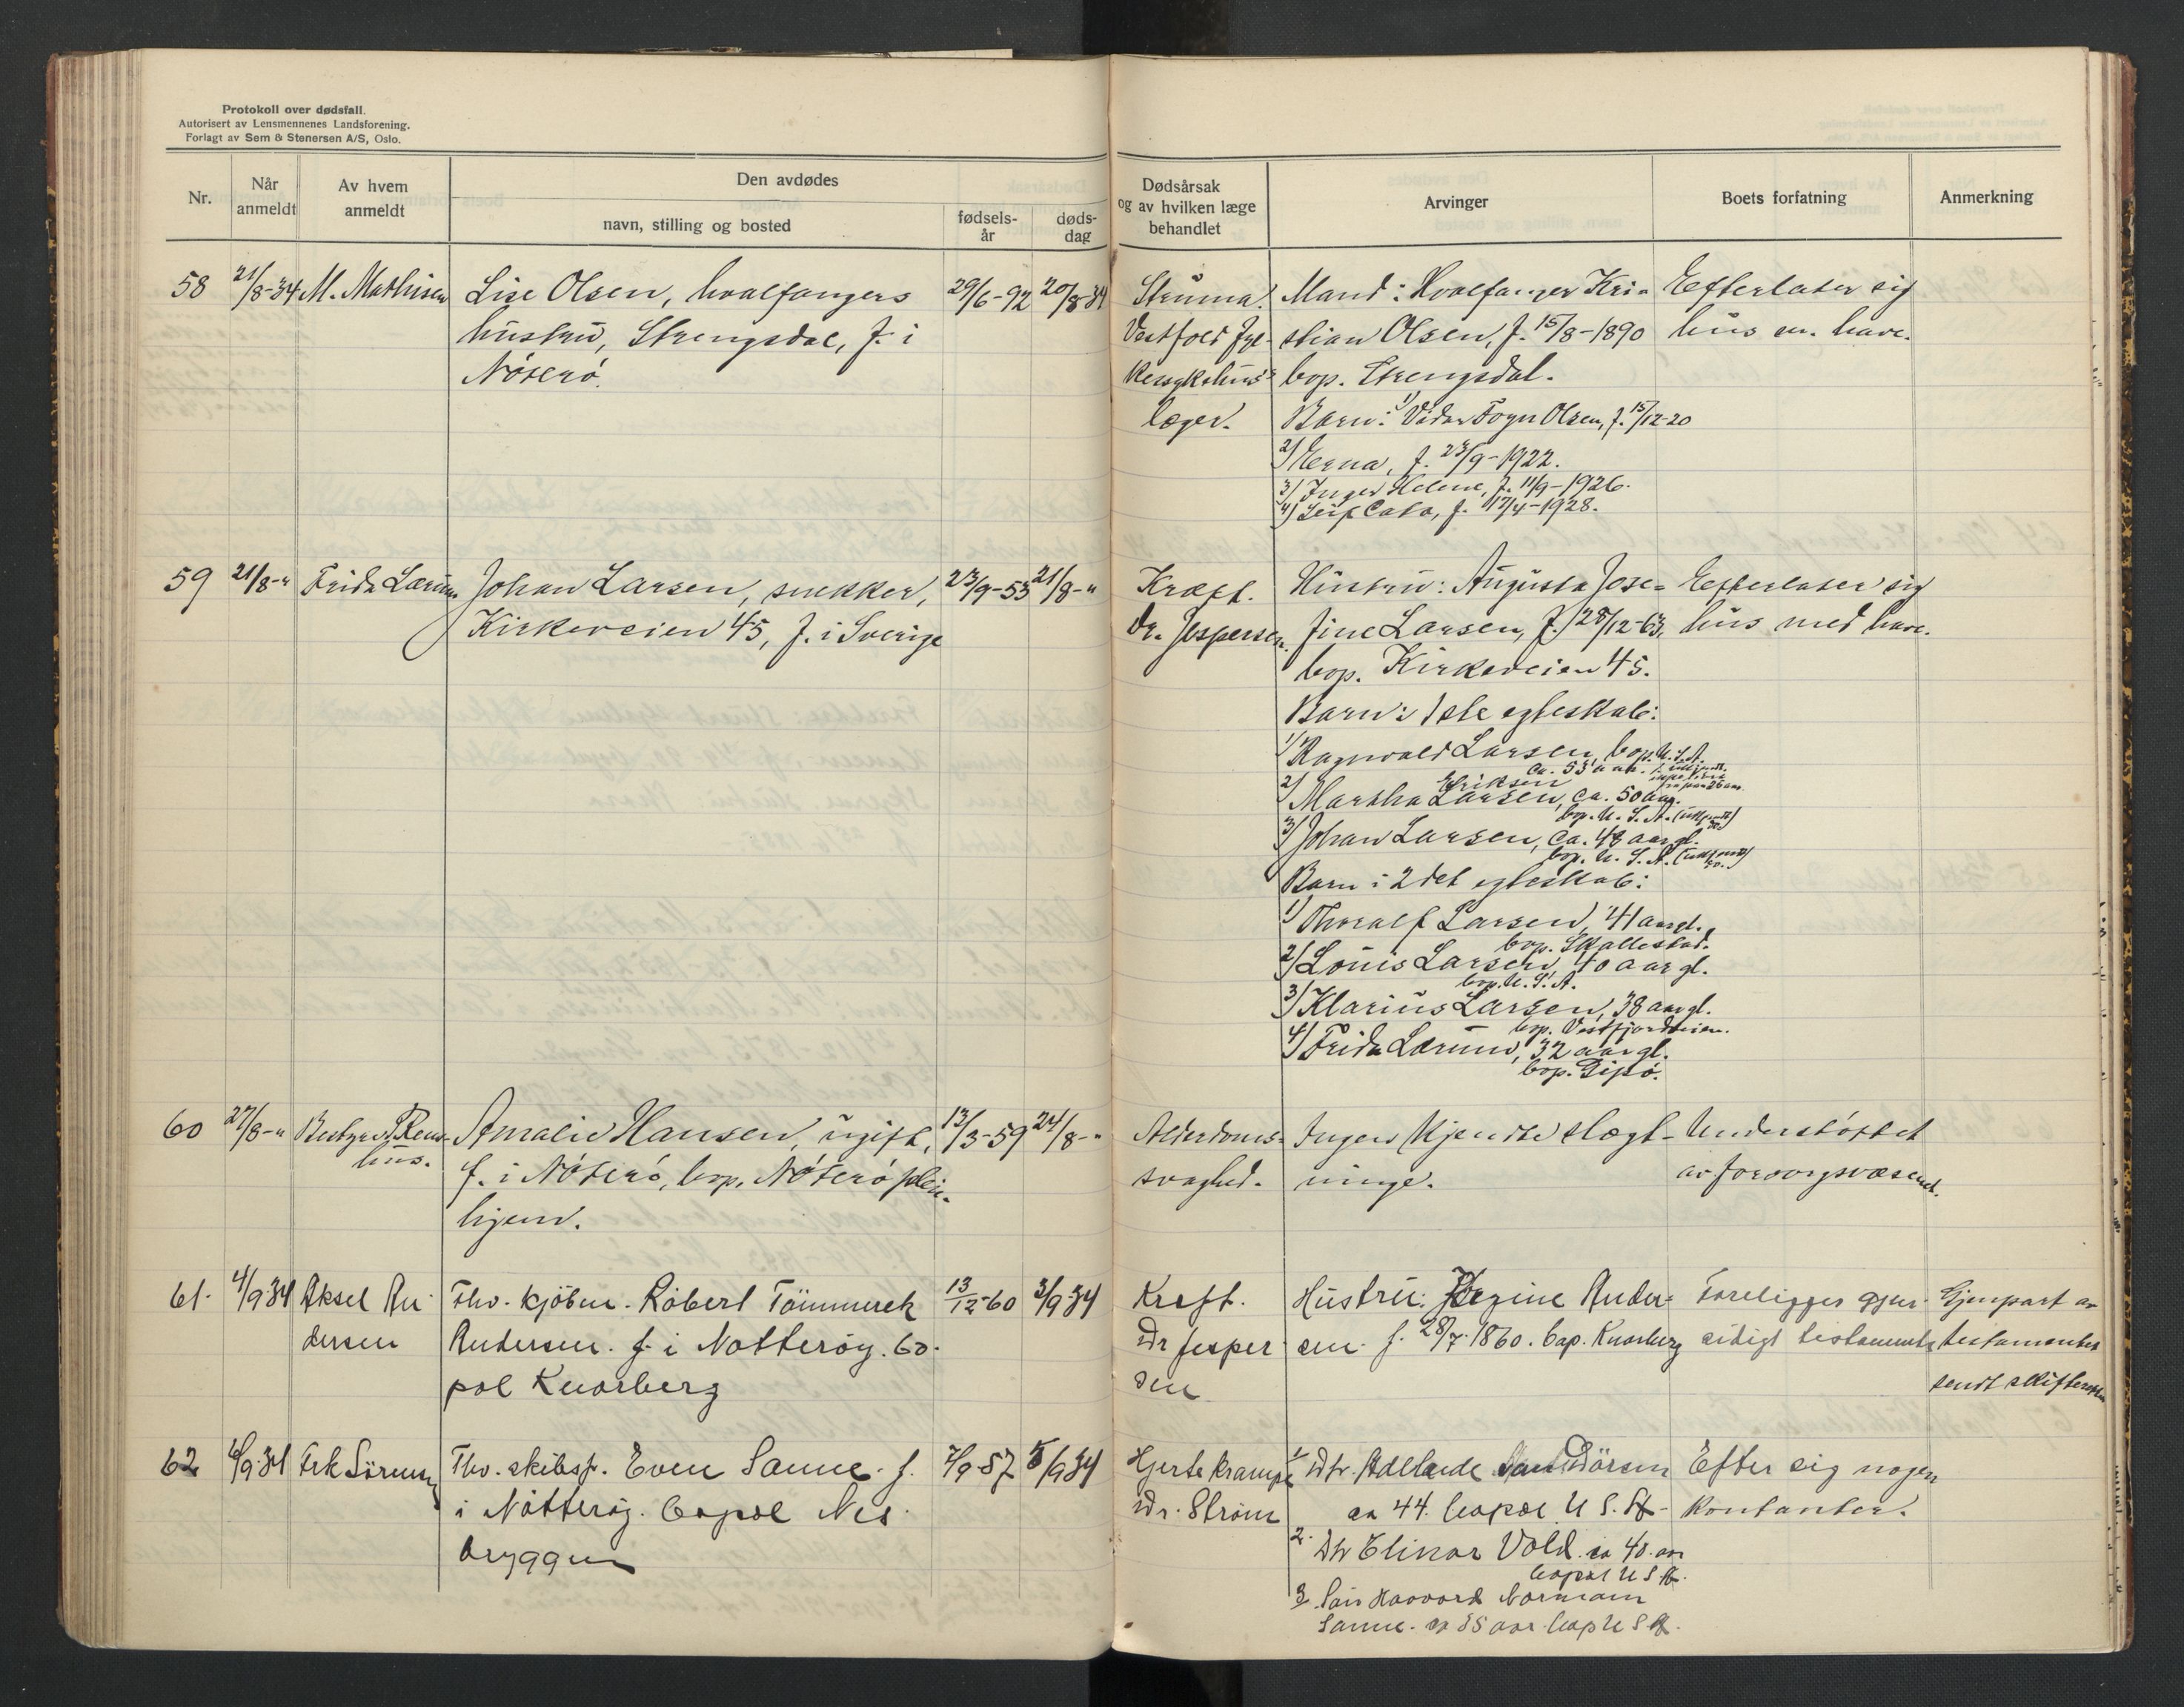 Protokoll over dødsfall.
Autorisert av Lensmennenes Landsforening.
Forlagt av Sem & Stenersen A/S, Oslo.
Nr.
Når anmeldt
Av hvem anmeldt
Den avdødes
navn, stilling og bosted
fødsels-år
døds-dag
Dødsårsak og av hvilken læge behandlet
Arvinger
Boets forfatning
Anmerkning
58
21/8-34
M. Mathisen
Lise Olsen, hvalfangers
hustru, Strengsdal, f. i
Nøterø.
29/6-92
20/8-34
Struma.
Vestfold fyl-
kessykehus's
læger.
Mand: Hvalfanger Kri-
stian Olsen, f. 15/8-1890
bop. Strengsdal.
Barn: 1) Vidar Fogn Olsen, f. 15/12-20
2) Erna, f. 23/9-1922.
3) Inger Helene, f. 11/9-1926.
4) Leif Cato, f. 17/4-1928.
Efterlater sig
hus m. have.
59
21/8-"
Frida Lærum
Johan Larsen, snekker,
Kirkeveien 45, f. i Sverige
23/9-53
21/8-"
Kræft.
Dr. Jespersen.
Hustru: Augusta Jose-
fine Larsen, f. 28/12-63,
bop. Kirkeveien 45.
Barn i 1ste egteskab:
1) Ragnvald Larsen, bop. U.S.A.
ca. 53 aar.
2) Martha Larsen, ca. 50 aar.
Eriksen
bop. U.S.A.
3) Johan Larsen, ca. 48 aar gl.
bop. U.S.A.
Barn i 2det egteskab:
1) Thoralf Larsen, 41 aar gl.,
bop. Skallestad.
2) Louis Larsen, 40 aar gl.
bop. U.S.A.
3) Klarius Larsen, 38 aar gl.
bop. Vestfjordveien.
4) Frida Lærum, 32 aar gl.
bop. Tipø.
Efterlater sig
hus med have.
60
27/8-"
Bestyrer
hus.
Amalie Hansen, ugift,
f. i Nøterø, bop. Nøterø pleie-
hjem.
13/3-59
24/8-"
Alderdoms-
svaghed.
Ingen kjendte slegt-
ninge.
Understøttet
av forsorgsvæsenet.
61.
4/9 34
Aksel An-
dersen
Fhv. kjøbm. Robert Tømmerek
Andersen. f. i Nøtterøy. bo-
pæl Knarberg
13/12-60
3/9 34
Kræft.
Dr Jesper
sen
Hustru: Regine Ander-
sen. f. 28/7-1860. bop. Knarberg
Foreligger gjen-
sidigt testamente
Gjenpart av
testamentet
sendt skifteretten
62
6/9 34
Frk Sørum
Fhv. skibsf. Even Sanne. f.
i Nøtterøy. bopæl Nes
bryggen
7/9-57
5/9 34
Hjertekrampe
Dr. Strøm
1 Dtr. Adelaide Sørum
ca 44. bopæl U.S.A.
2. Dtr Elinor Vold. ca 40. aar
bopæl U S A.
3 Søn Haavard Normann
Sanne. ca 35 aar. bop. U S A.
Efter sig nogen
kontanter.